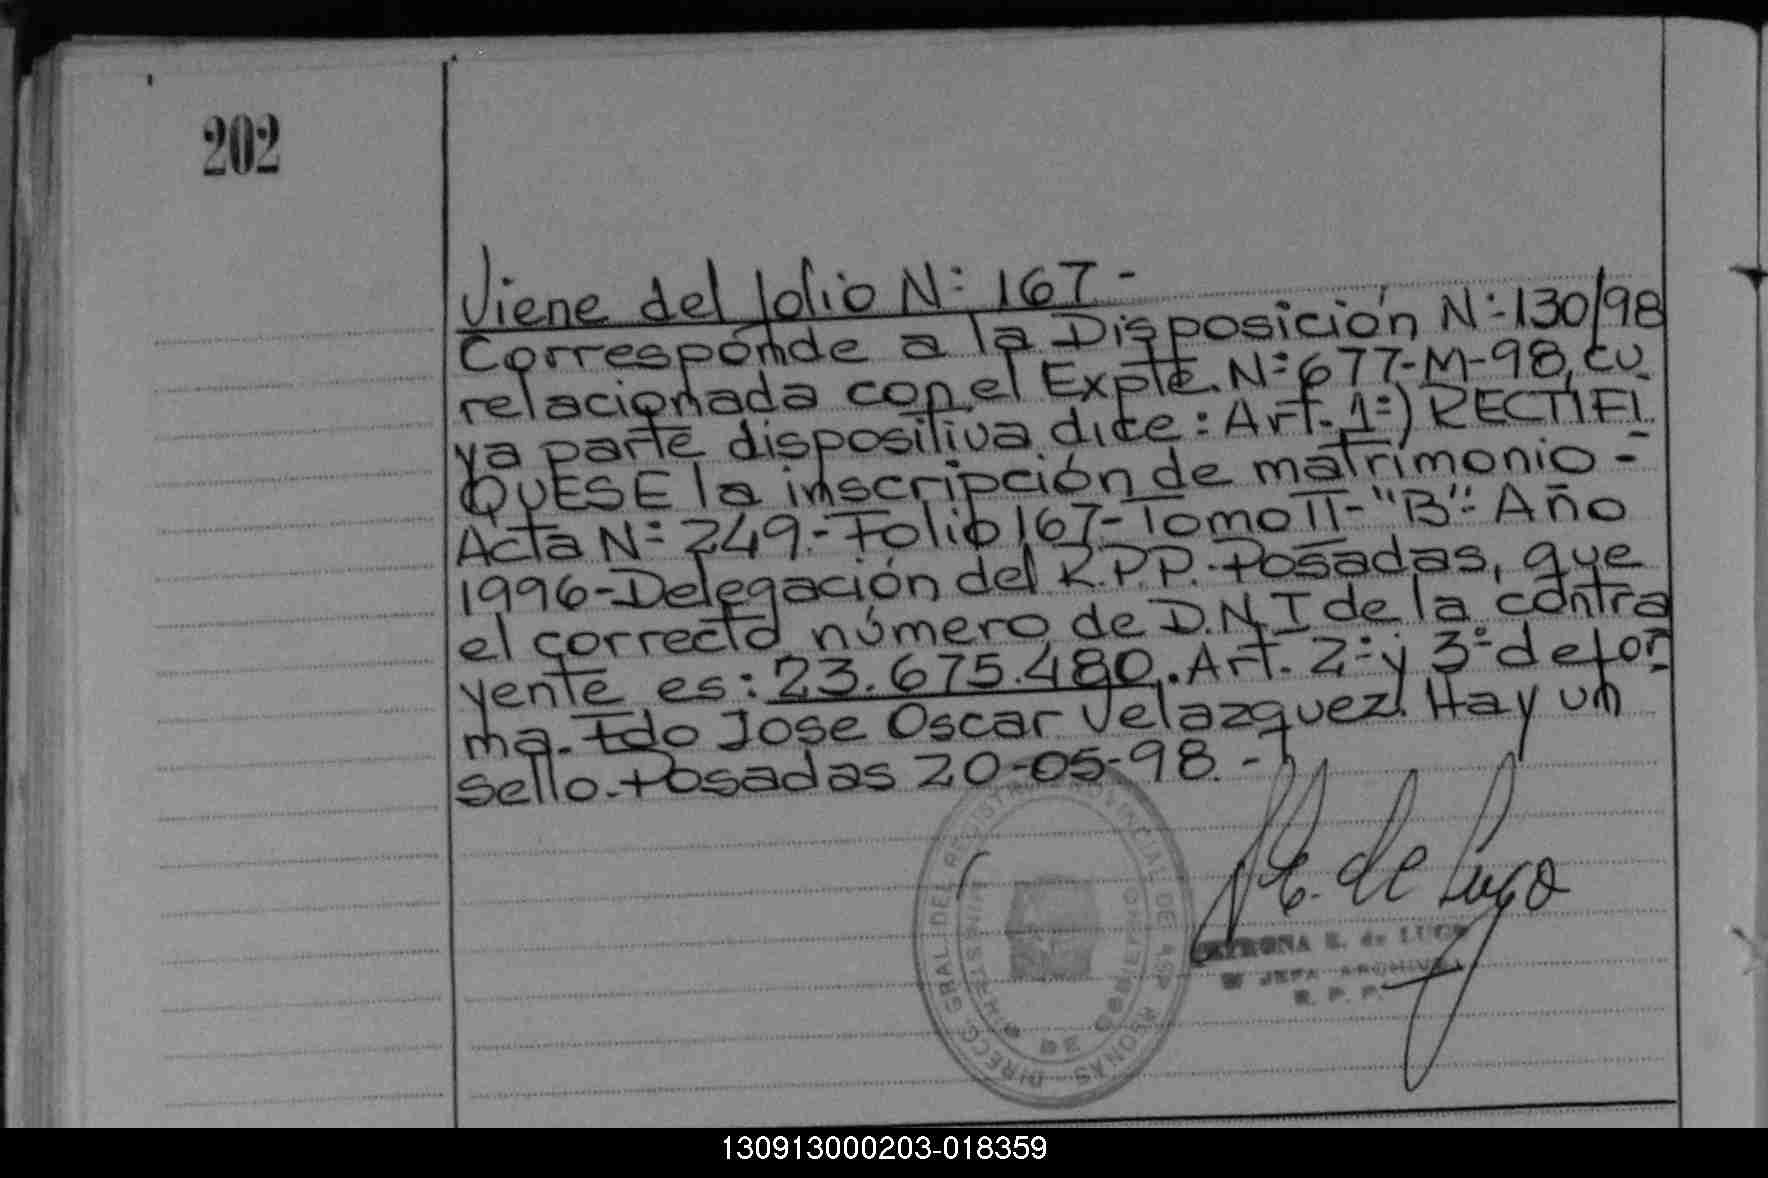 202
Viene del folio Nº 167-
Corresponde a la Disposición Nº 130/98
relacionada con el Expte. Nº 677-M-98, cu
ya parte dispositiva dice: Art. 1º) RECTIFI
QUESE la inscripción de matrimonio -
Acta Nº 249.- Folio 167- Tomo II- "B"- Año
1996- Delegación del R.P.P. Posadas, que
el correcto número de D.N.I de la contra
yente es: 23.675.480. Art. 2º y 3º de for
ma. Fdo Jose Oscar Velazquez. Hay un
sello. Posadas 20-05-98.-
DIRECC. GRAL. DEL REGISTRO PROVINCIAL DE PERSONAS
MINISTERIO DE GOBIERNO
de Lugo
E. de LUGO
JEFA ARCHIVO
R. P. P.
130913000203-018359